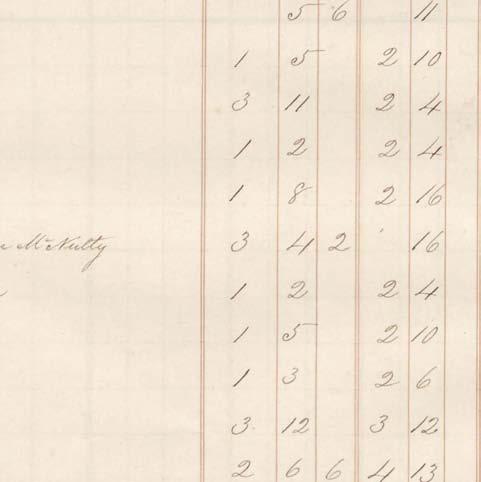 5 6 11
1 5 2 10
3 11 2 4
1 2 2 4
1 8 2 16
Mc Nulty 3 4 2 16
1 2 2 4
1 5 2 10
1 3 2 6
3 12 3 12
2 6 6 4 13